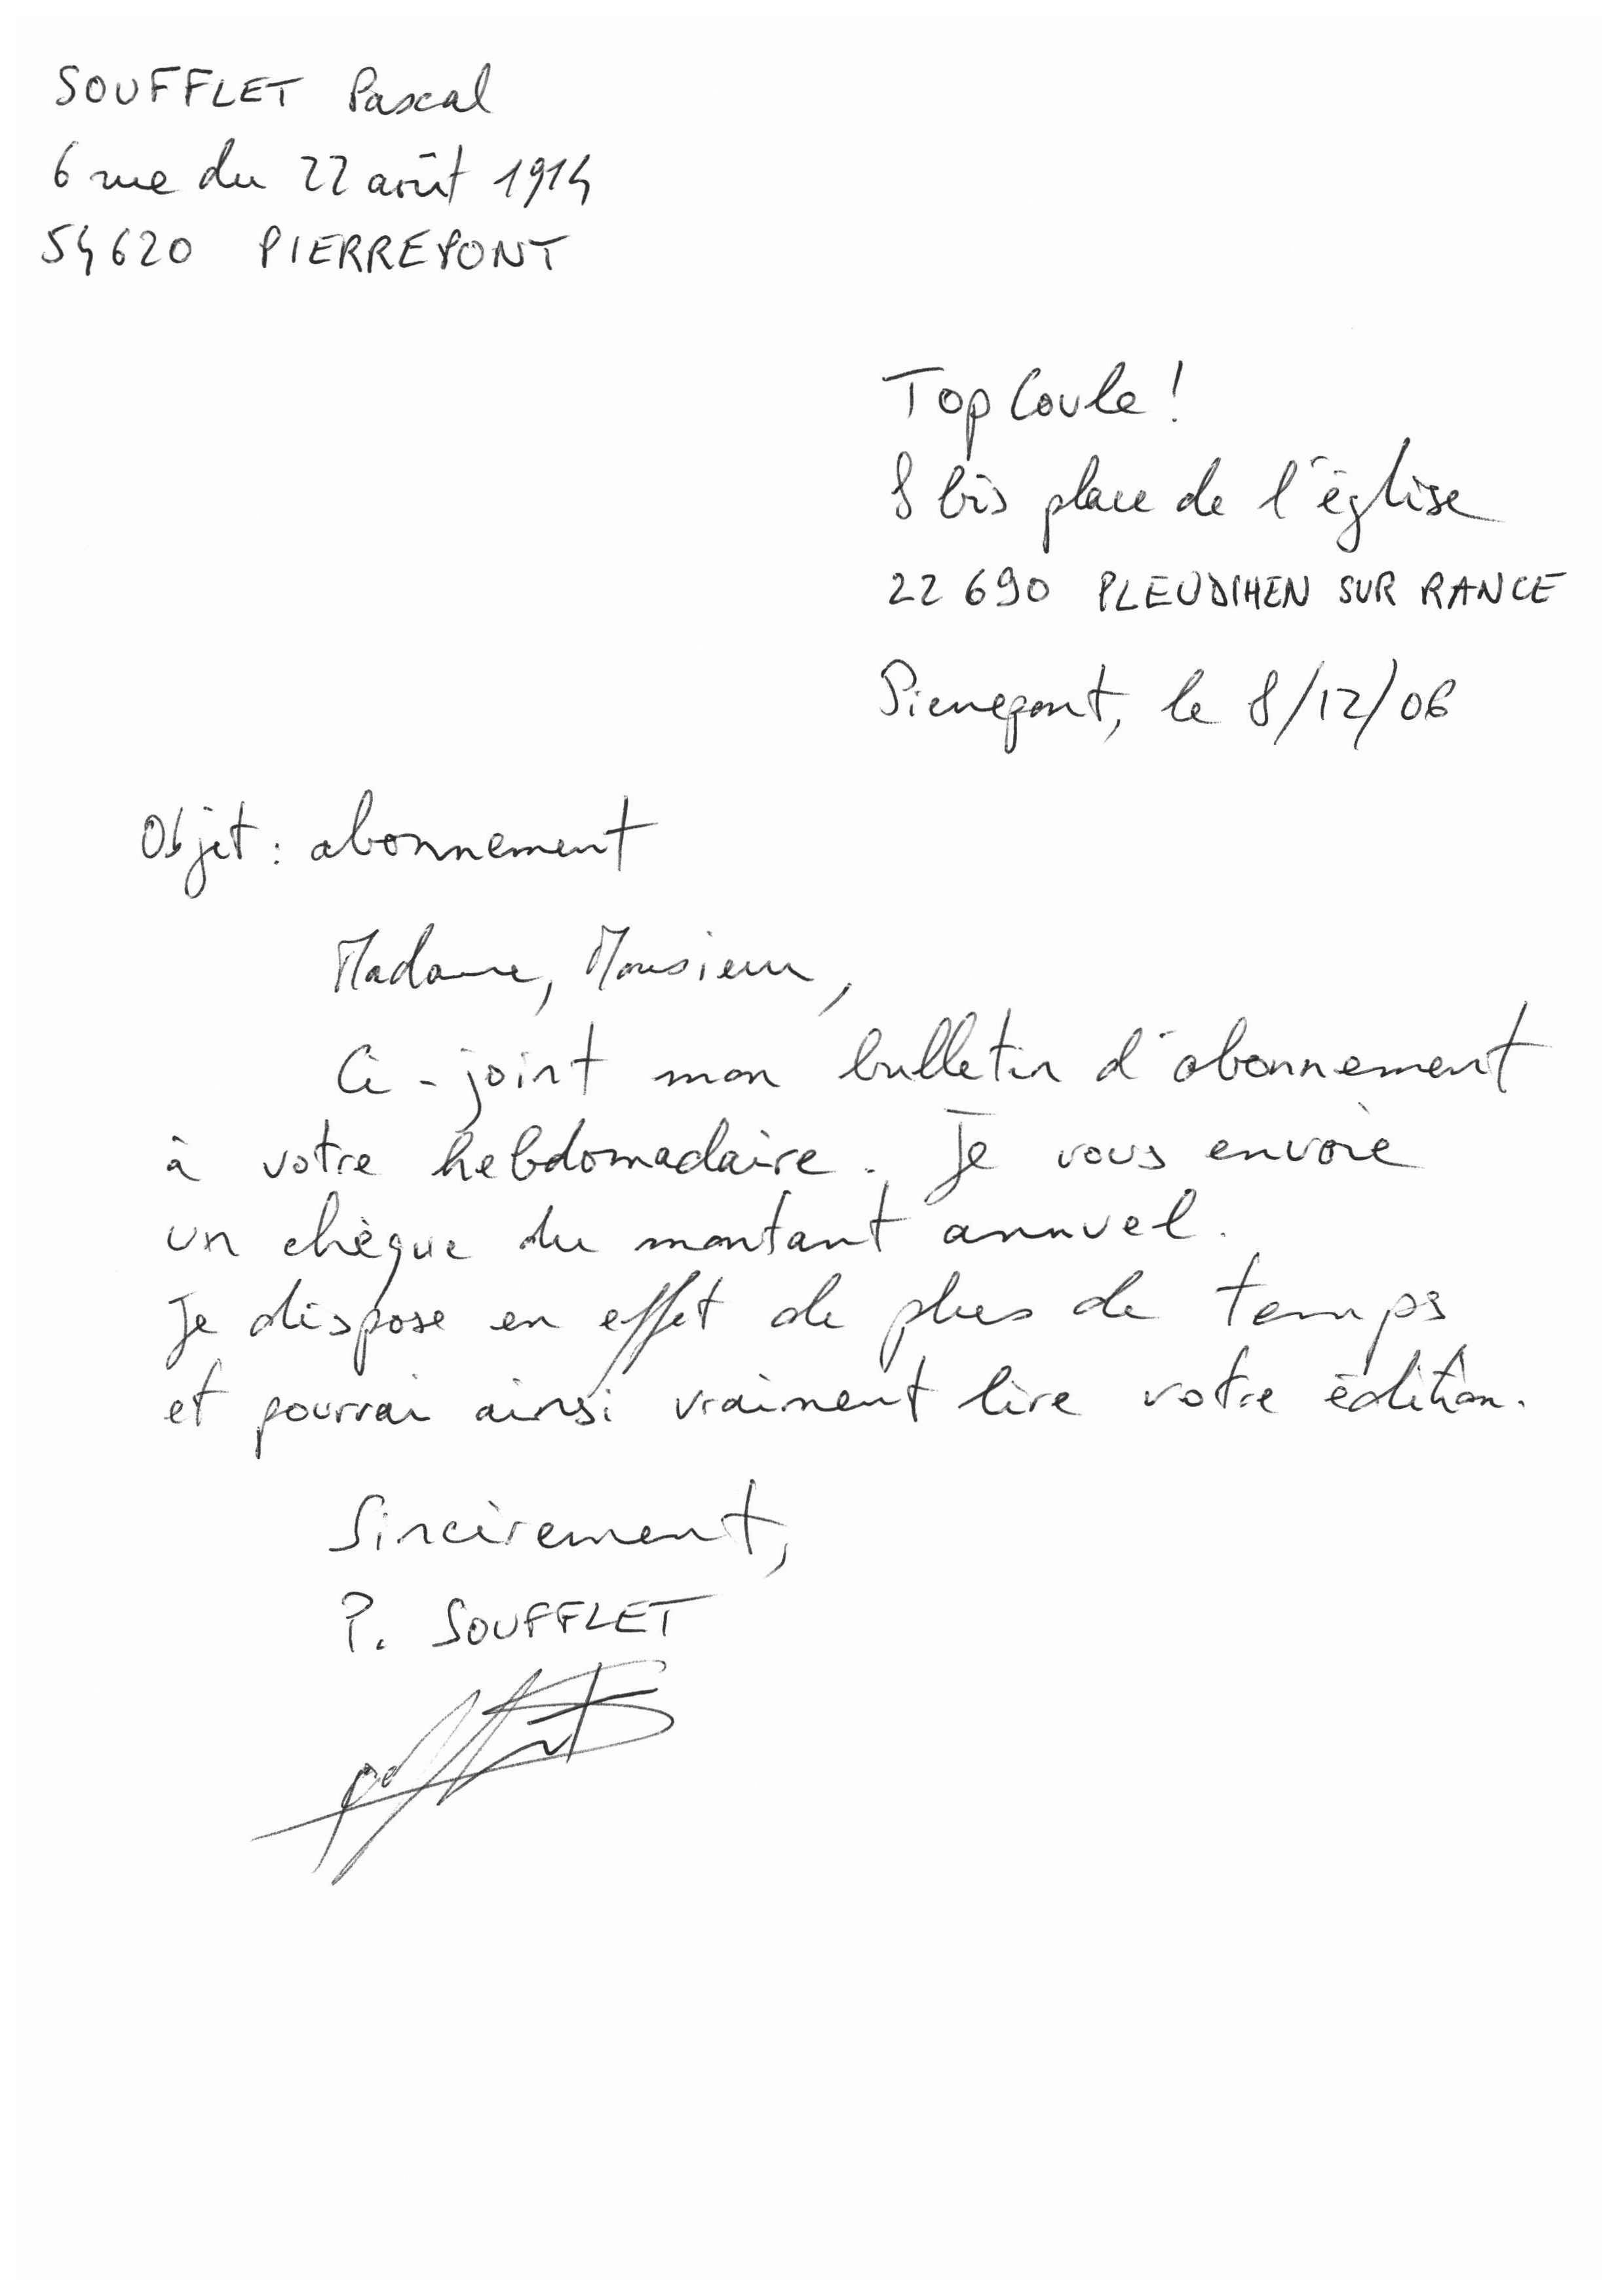 SOUFFLET Pascal
6 rue du 22 août 1914
54620 PIERREPONT
Top Coule !
8 bis place de l'église
22 690 PLEUDIHEN SUR RANCE
Pierrepont, le 8/12/06
Objet : abonnement
Madame, Monsieur,
Ci-joint mon bulletin d'abonnement
à votre hebdomadaire. Je vous envoie
un chèque du montant annuel.
Je dispose en effet de plus de temps
et pourrai ainsi vraiment lire votre édition.
Sincèrement,
P. SOUFFLET